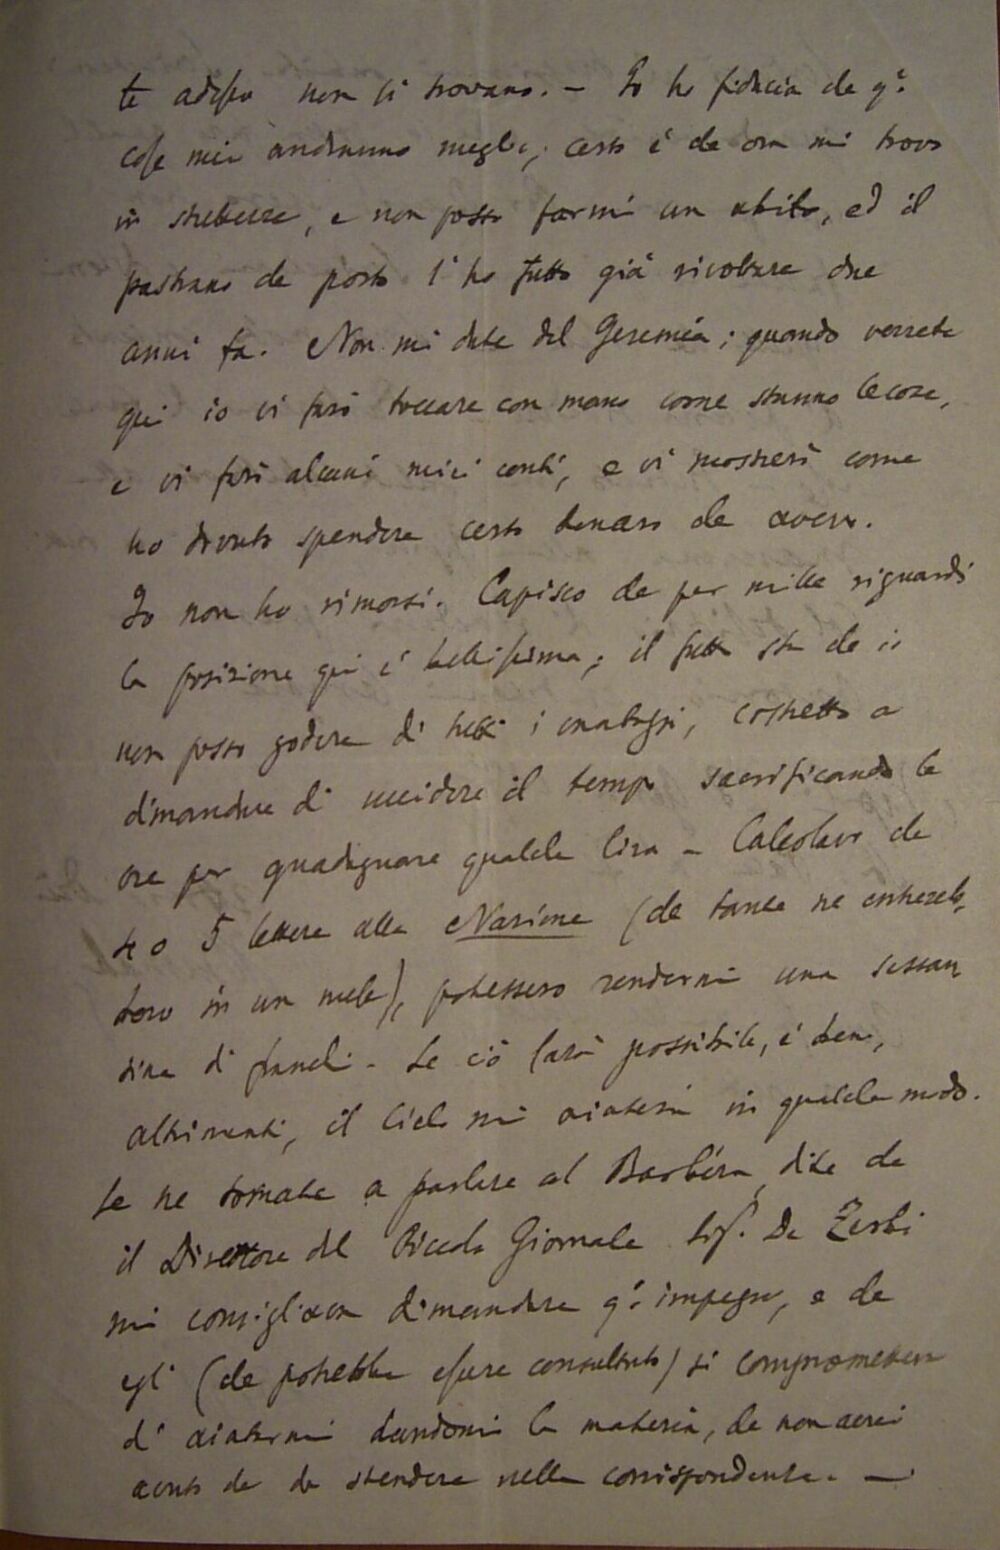 te adesso non si trovano. – Io ho fiducia che q.e
cose mie andranno meglio; certo è che ora mi trovo
in strettezze, e non posso farmi un abito, ed il
pastrano che porto l'ho fatto già rivoltare due
anni fa. Non mi dite del Geremia; quando verrete
qui io vi farò toccare con mano come stanno le cose,
e vi farò alcuni miei conti, e vi mostrerò come
ho dovuto spendere certo denaro che avevo.
Io non ho rimorsi. Capisco che per mille riguardi
la posizione qui è bellissima; il fatto sta che io
non posso godere di tutti i vantaggi, costretto a
dimandare di uccidere il tempo sacrificando le
ore per guadagnare qualche lira – Calcolavo che
4 o 5 lettere alla Nazione (che tante ne entrereb-
bero in un mese), potessero rendermi una sessan
tina di franchi. Se ciò sarà possibile, è bene,
altrimenti, il Cielo mi aiuterà in qualche modo.
Se ne tornate a parlare al Barbèra, dite che
il Direttore del Piccolo Giornale Sig. De Zerbi
mi consigliava dimandare q.o impegno, e che
egli (che potrebbe essere consultato) si comprometteva
di aiutarmi dandomi la materia, che non avrei
avuto che da stendere nelle corrispondenze. —